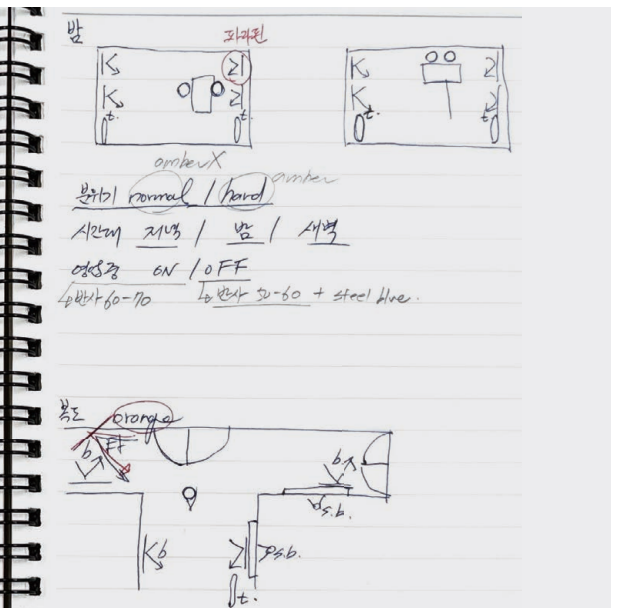 밤 파라핀
t. t. t. t.
amber X
amber
분위기 normal / hard
시간대 저녁 / 밤 / 새벽
영업중 ON / OFF
↳반사 60-70 ↳반사 50-60 + steel blue.
복도 orange
b. FF b.
s.b.
b s.b.
t.